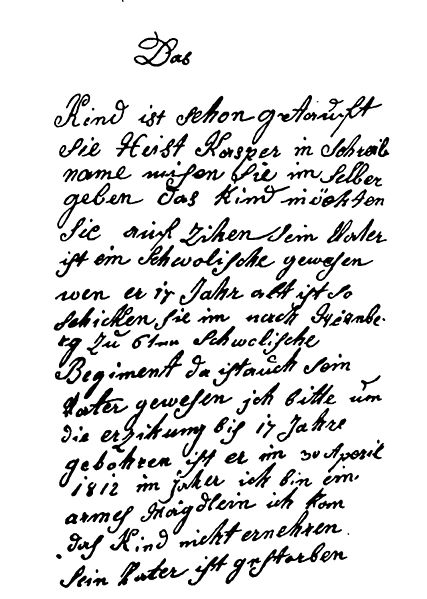 Das
Kind ist schon getauft
Sie Heist Kasper in Schreib
name misen Sie im Selber
geben das Kind möchten
Sie auf Zihen Sein Vater
ist ein Schwolische gewesen
wen er 17 Jahr alt ist so
schicken Sie im nach Nirnbe-
rg zu 6ten Schwolische
Begiment da ist auch sein
Vater gewesen ich bitte um
die erzikung bis 17 Jahre
gebohren ist er im 30 Aperil
1812 im jaher ich bin ein
armes Mägdlein ich kan
das Kind nicht ernehren
Sein Vater ist gestorben